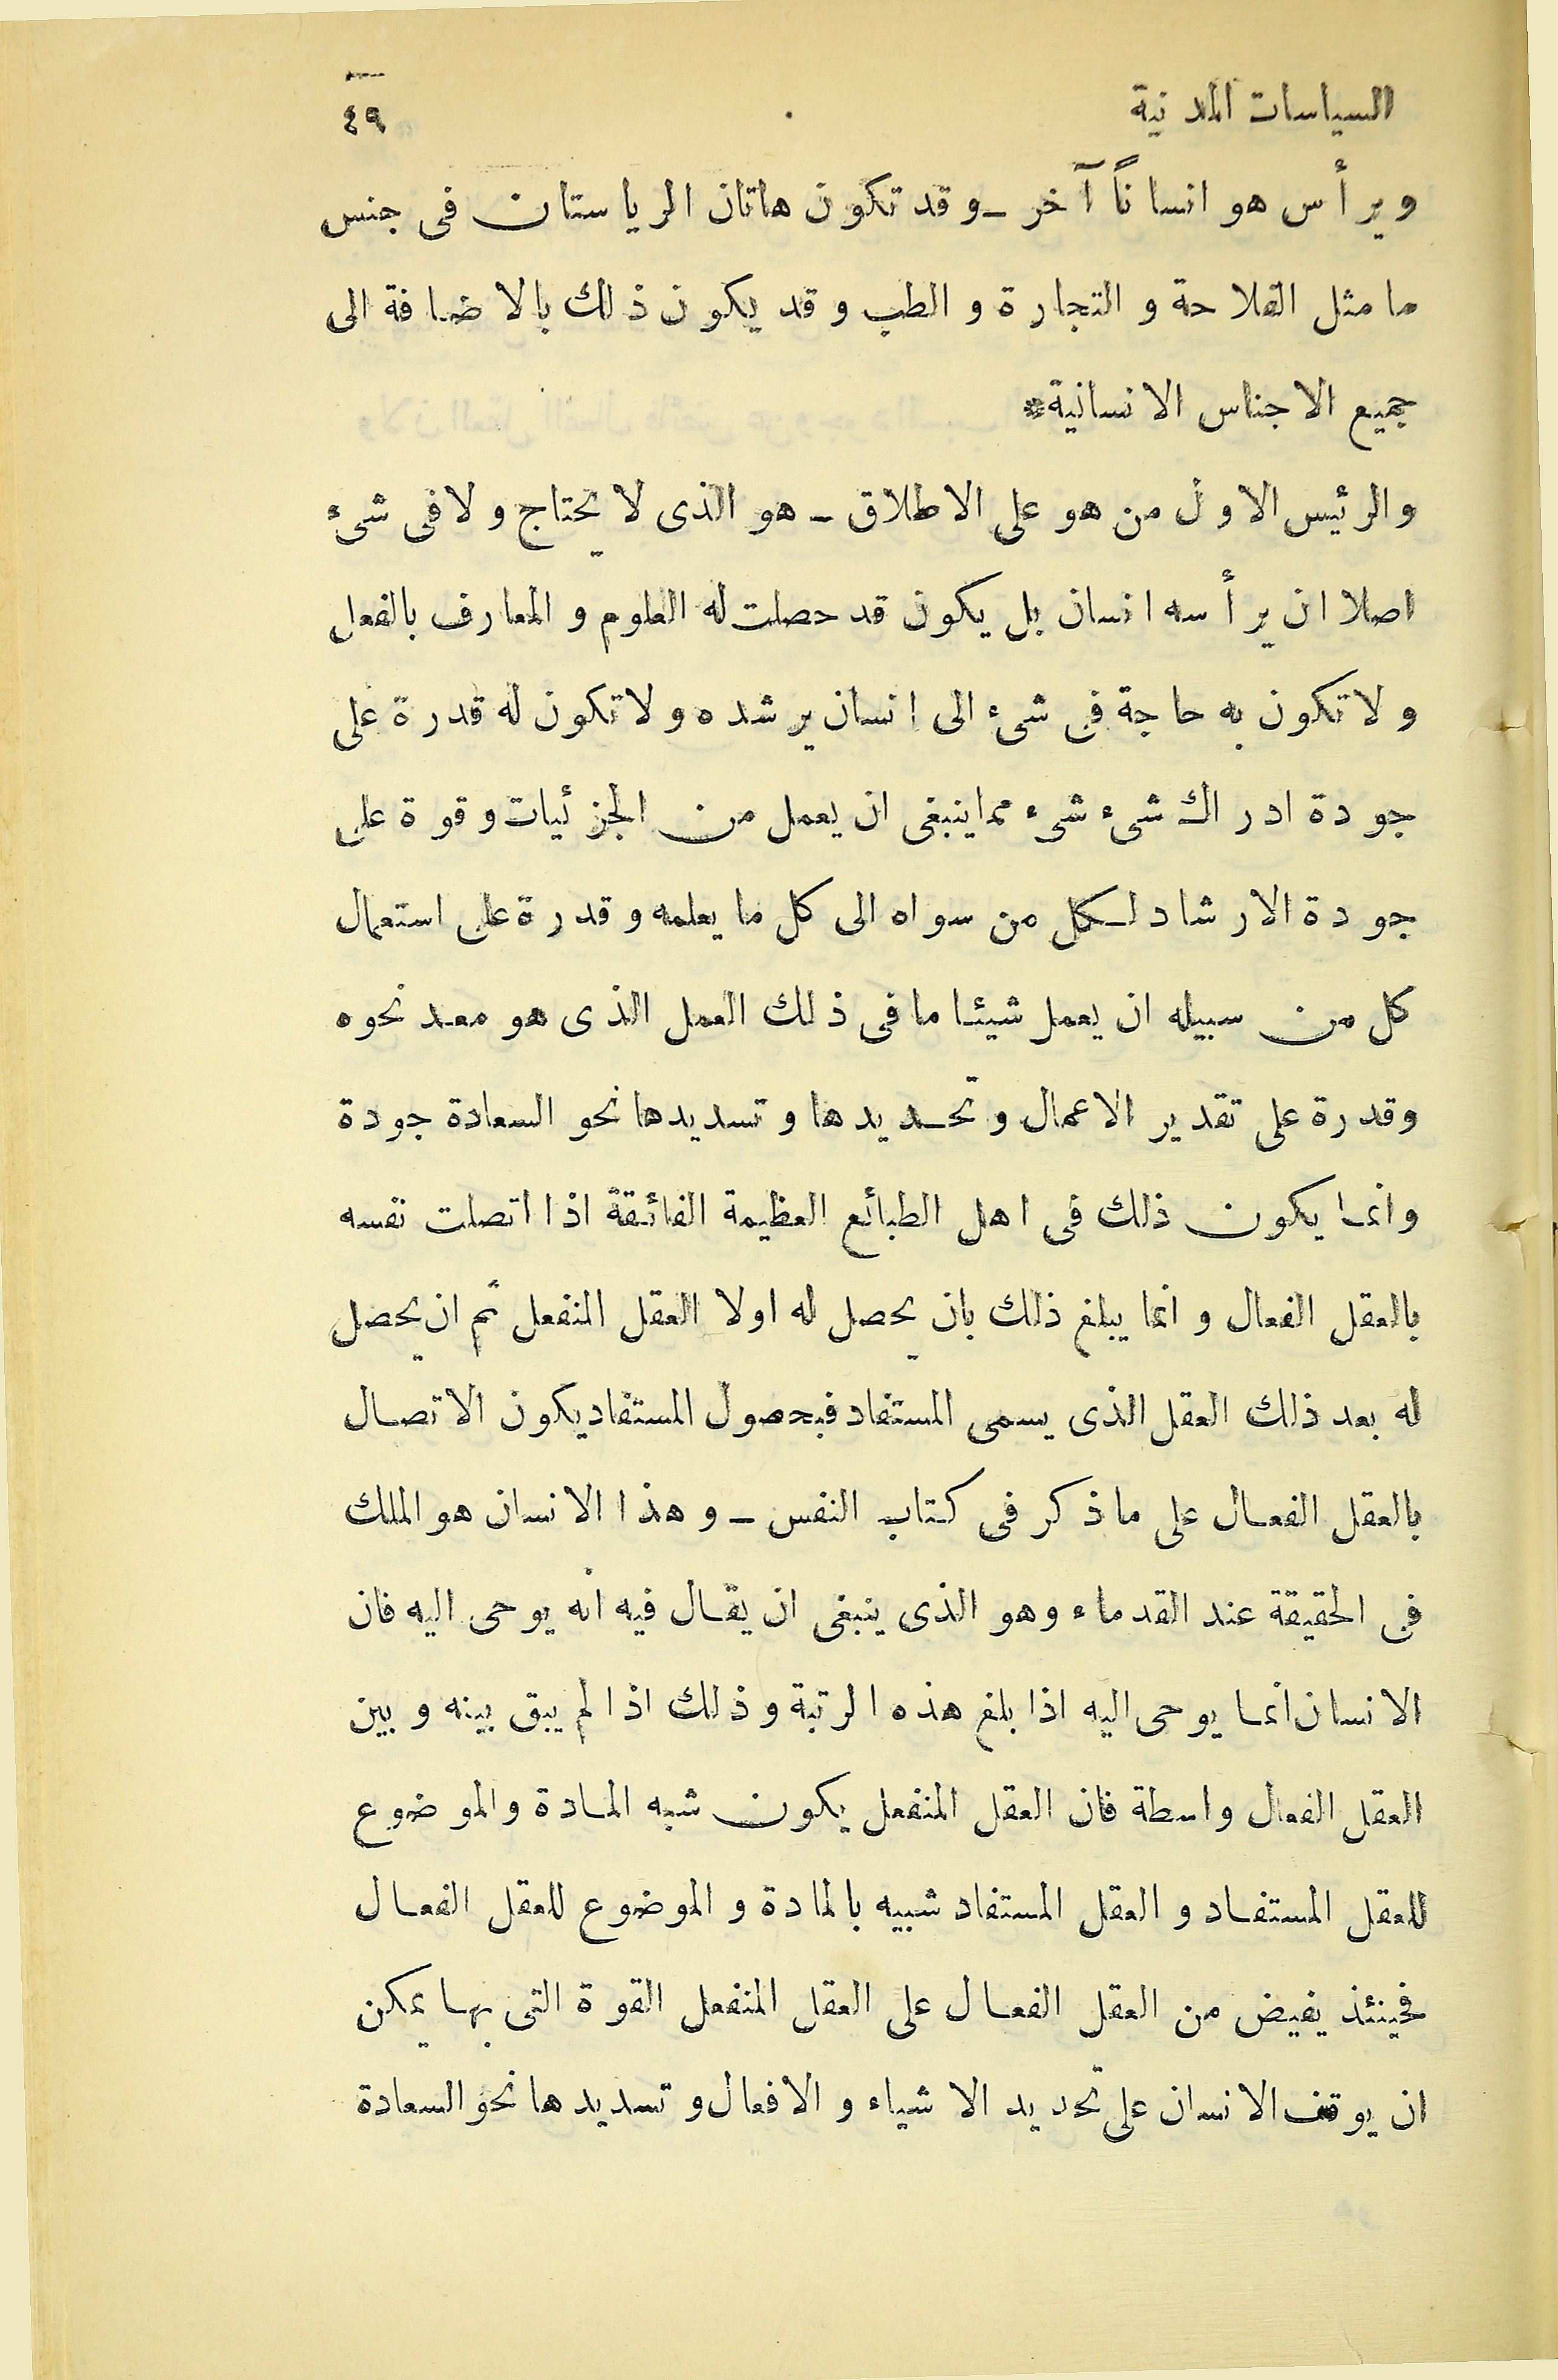 السياسات المدنية ٤٩
ويرأس هو انسانًا آخر ـ وقد تكون هاتان الرياستان فى جنس
ما مثل الفلاحة والتجارة والطب وقد يكون ذلك بالاضافة الى
جميع الاجناس الانسانية*
والرئيس الاول من هو على الاطلاق ـ هو الذى لا يحتاج ولا فى شئ
اصلا ان يرأسه انسان بل يكون قد حصلت له العلوم والمعارف بالفعل
ولا تكون به حاجة فى شىء الى انسان يرشده ولا تكون له قدرة على
جودة ادراك شىء شىء مما ينبغى ان يعمل من الجزئيات وقوة على
جودة الارشاد لكل من سواه الى كل ما يعلمه وقدرة على استعمال
كل من سبيله ان يعمل شيئا ما فى ذلك العمل الذى هو معد نحوه
وقدرة على تقدير الاعمال وتحديدها وتسديدها نحو السعادة جودة
وانما يكون ذلك فى اهل الطبائع العظيمة الفائقة اذا اتصلت نفسه
بالعقل الفعال وانما يبلغ ذلك بان يحصل له اولا العقل المنفعل ثم ان يحصل
له بعد ذلك العقل الذى يسمى المستفاد فبحصول المستفاد يكون الاتصال
بالعقل الفعال على ما ذكر فى كتاب النفس ـ وهذا الانسان هو الملك
فى الحقيقة عند القدماء وهو الذى ينبغى ان يقال فيه انه يوحى اليه فان
الانسان انما يوحى اليه اذا بلغ هذه الرتبة وذلك اذا لم يبق بينه وبين
العقل الفعال واسطة فان العقل المنفعل يكون شبه المادة والموضوع
للعقل المستفاد والعقل المستفاد شبيه بالمادة والموضوع للعقل الفعال
فحينئذ يفيض من العقل الفعال على العقل المنفعل القوة التى بها يمكن
ان يوقف الانسان على تحديد الاشياء والافعال وتسديدها نحو السعادة